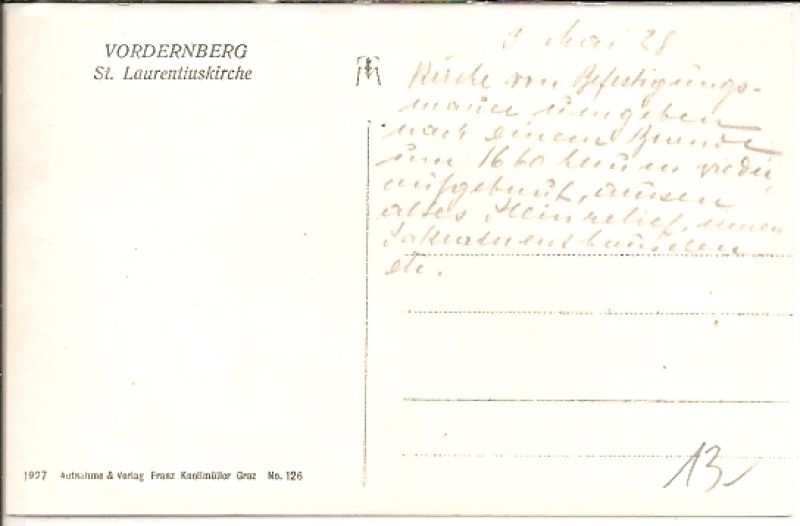 VORDERNBERG
St. Laurentiuskirche
Mai 28
Kirche von Befestigungs-
mauer umgeben
nach einem Brande
um 1660 herum wieder
aufgebaut, aussen
altes Steinrelief, innen
Sakramentshäuschen
etc.
1927 Aufnahme & Verlag Franz Knollmüller Graz No. 126
13